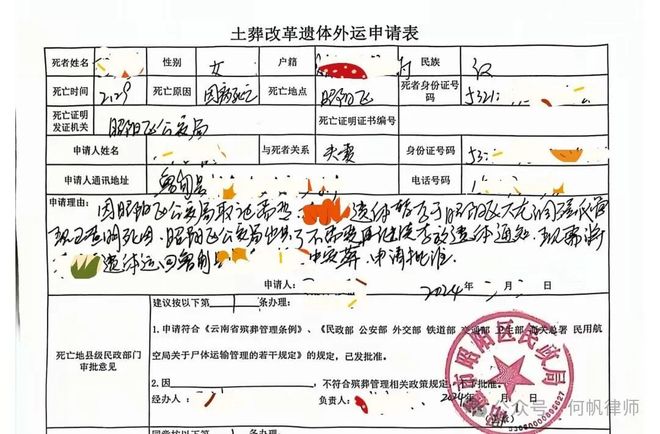 土葬改革遗体外运申请表
死者姓名 性别 女 户籍 村 民族 汉
死亡时间 2.29 死亡原因 因病死亡 死亡地点 昭阳区 死者身份证号码 5321
死亡证明发证机关 昭阳区公安局 死亡证明证书编号
申请人姓名 与死者关系 夫妻 身份证号码 53
申请人通讯地址 鲁甸县 电话号码
申请理由:因昭阳区公安局取证需要 遗体暂存于昭阳区
现已查明死因,昭阳区公安局也出了不需要再继续存放遗体通知,现需将
遗体运回鲁甸县 安葬,申请批准。
申请人: 2024年 月 日
死亡地县级民政部门审批意见
建议按以下第 1 条办理:
1.申请符合《云南省殡葬管理条例》、《民政部 公安部 外交部 铁道部 交通部 卫生部 海关总署 民用航
空局关于尸体运输管理的若干规定》的规定,已发批准。
2.因 ,不符合殡葬管理相关政策规定,不予批准。
经办人: 负责人: 2024年 月 日
市昭阳区民政局
公众号·何帆律师
同意按以下第 条办理: